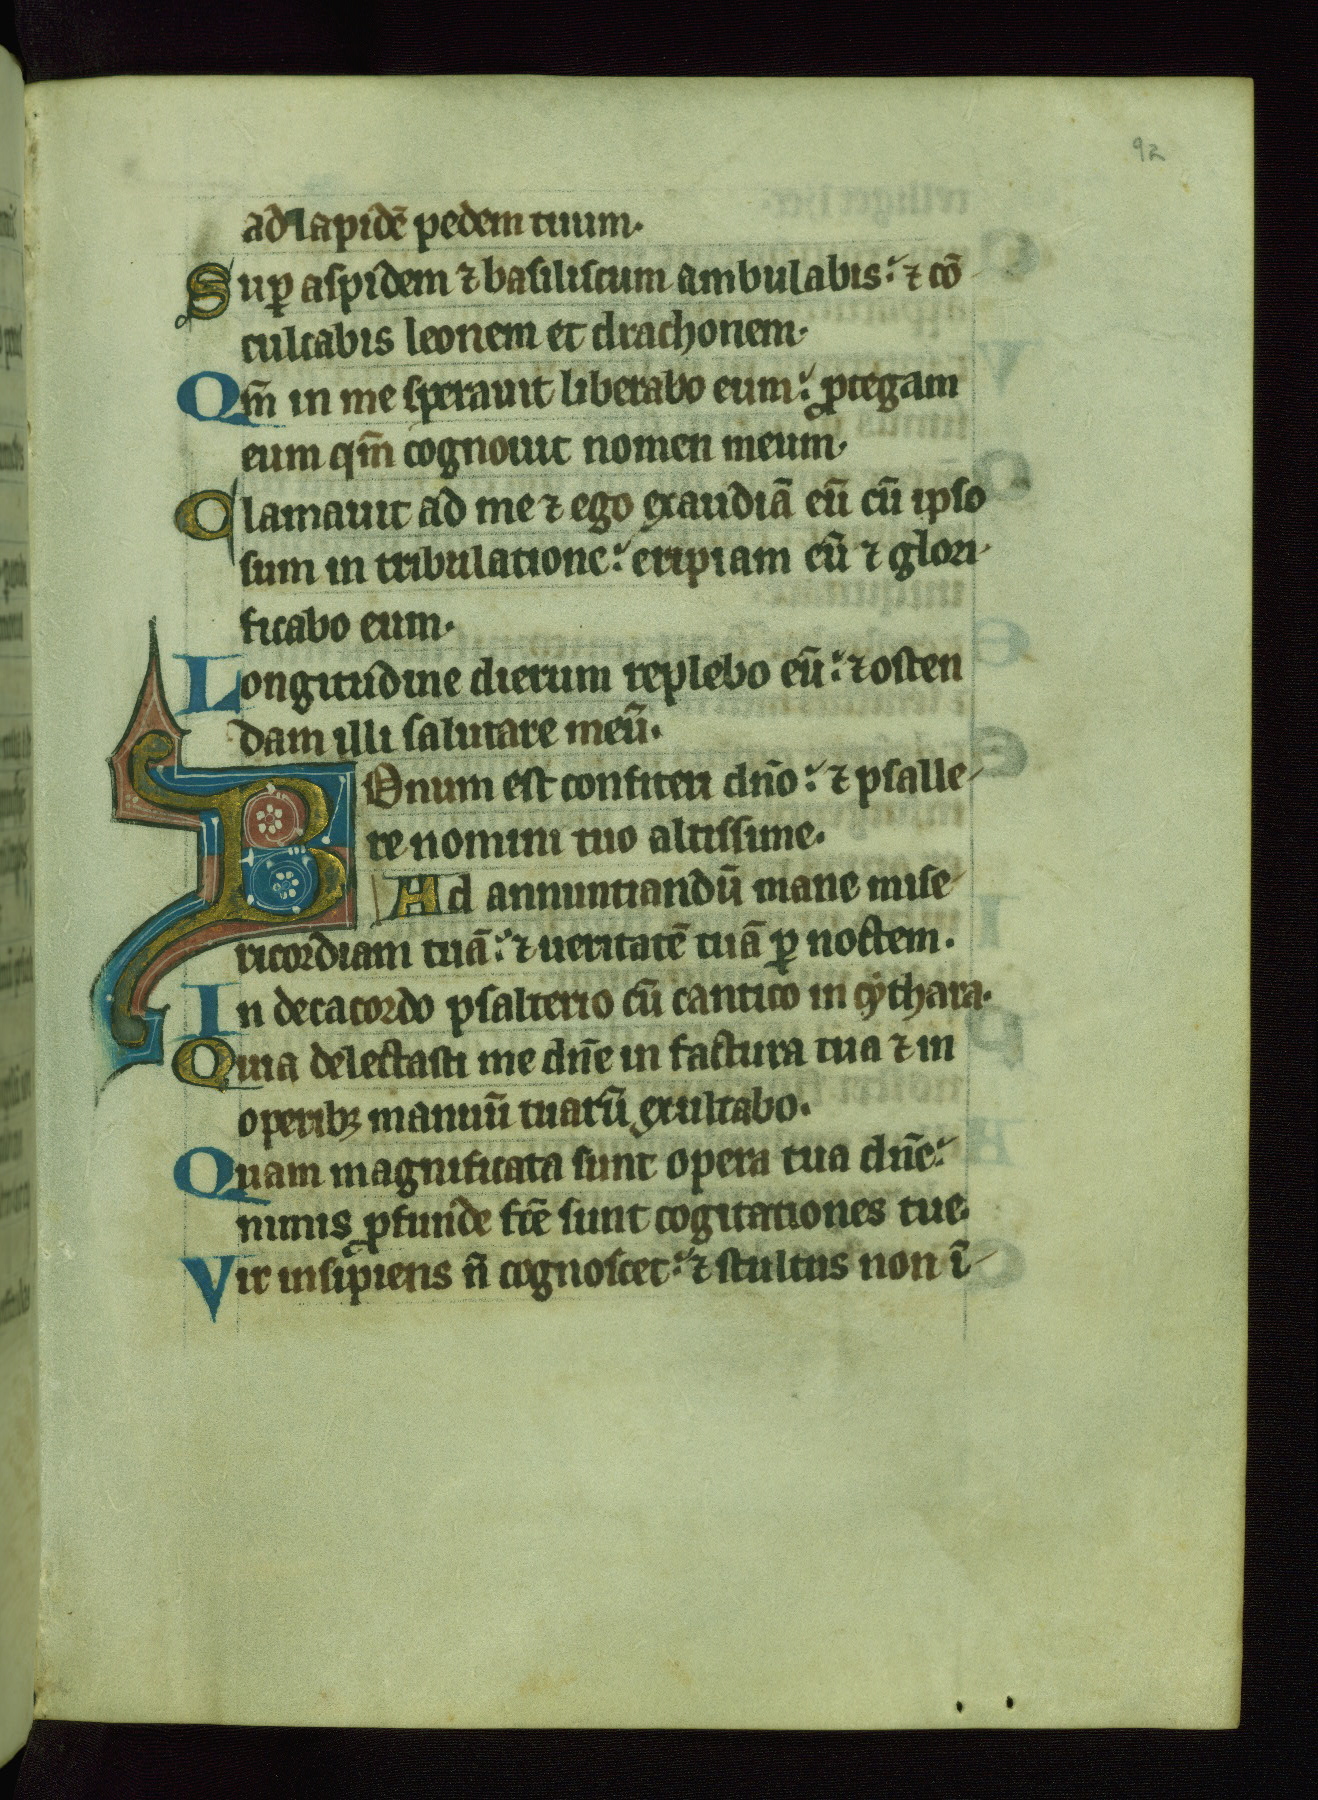 92
ad lapidē pedem tuum.
Suꝑ aspidem ⁊ basiliscum ambulabis: ⁊ cō
culcabis leonem et drachonem.
Qm̄ in me sperauit liberabo eum: ꝓtegam
eum qm̄ cognouit nomen meum.
Clamauit ad me ⁊ ego exaudiā eū cū ipso
sum in tribulatione: eripiam eū ⁊ glori
ficabo eum.
Longitudine dierum replebo eū: ⁊ osten
dam illi salutare meū.
BOnum est confiteri dn̄o: ⁊ psalle
re nomini tuo altissime.
Ad annuntiandū mane mise
ricordiam tuā: ⁊ ueritatē tuā ꝑ noctem.
In decacordo psalterio cū cantico in cythara.
Quia delectasti me dn̄e in factura tua ⁊ in
operibꝫ manuū tuarū exultabo.
Quam magnificata sunt opera tua dn̄e:
nimis ꝓfunde fc̄e sunt cogitationes tue.
Vir insipiens n̄ cognoscet: ⁊ stultus non ī